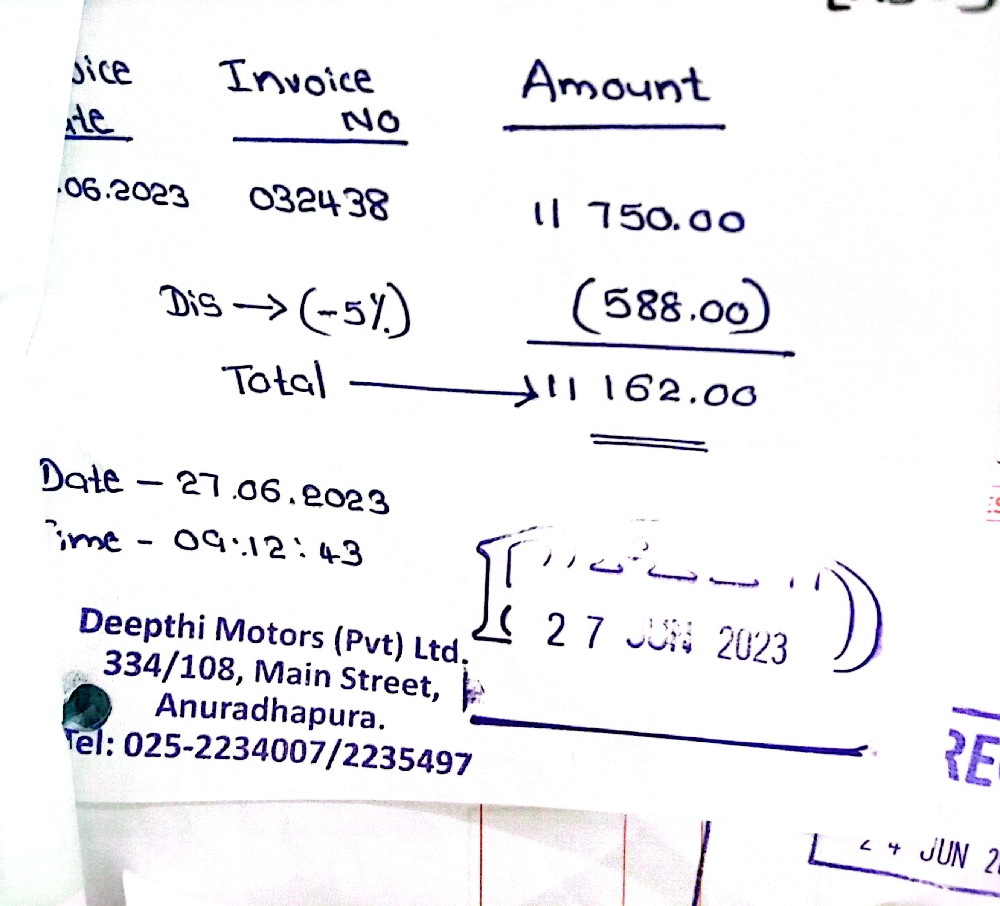 Invoice Amount
NO
.06.2023 032438 11 750.00
Dis → (-5%) (588.00)
Total → 11 162.00
Date - 27.06.2023
Time - 09:12:43
27 JUN 2023
Deepthi Motors (Pvt) Ltd.
334/108, Main Street,
Anuradhapura.
Tel: 025-2234007/2235497
JUN